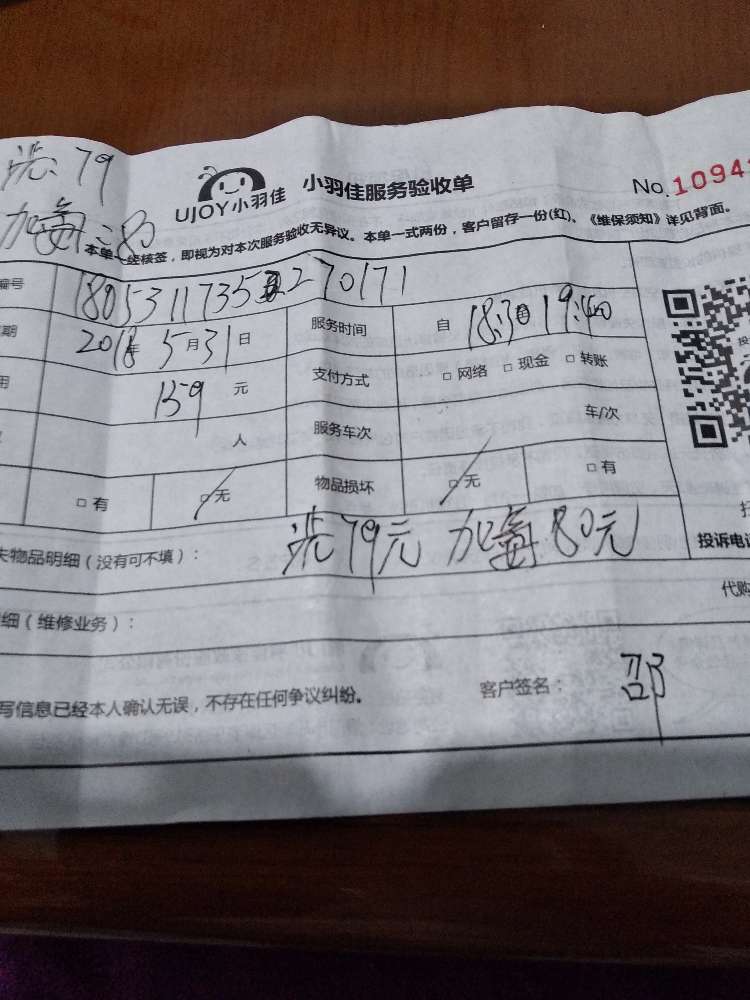 洗:79
加氟:80
UJOY小羽佳 小羽佳服务验收单 No.1094
本单一经核签，即视为对本次服务验收无异议。本单一式两份，客户留存一份(红)。《维保须知》详见背面。
编号 18053117355270171
期 2018年 5月31日 服务时间 自 18:30 19:40
用 159 元 支付方式 □网络 □现金 □转账
人 服务车次 车/次
□有 □无 物品损坏 □无 □有
失物品明细（没有可不填）： 洗79元 加氟80元
投诉电话
代购
细（维修业务）：
写信息已经本人确认无误，不存在任何争议纠纷。 客户签名： 邵